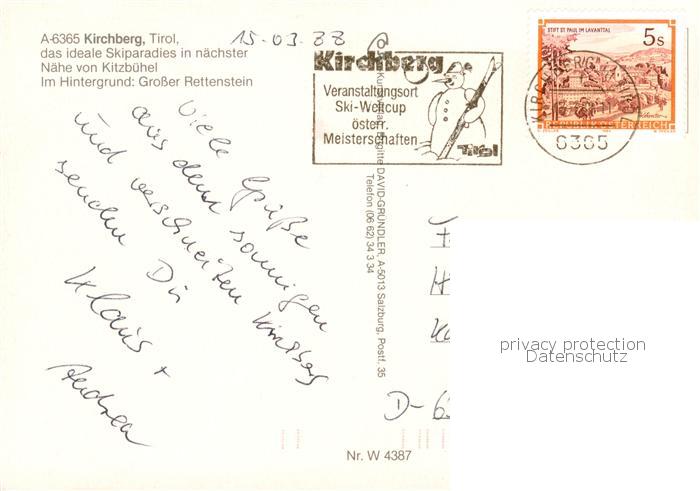 A-6365 Kirchberg, Tirol,
das ideale Skiparadies in nächster
Nähe von Kitzbühel
Im Hintergrund: Großer Rettenstein
15.03.88
Kirchberg
Veranstaltungsort
Ski-Weltcup
österr.
Meisterschaften
Tirol
STIFT ST PAUL IM LAVANTTAL
5s
REPUBLIK ÖSTERREICH
6365
Viele Grüße
aus dem sonnigen
und verschneiten Kirchberg
senden Dir
Klaus +
Andrea
DAVID-GRÜNDLER, A-5013 Salzburg, Postf. 35
Telefon (06 62) 34 3 34
D-6
privacy protection
Datenschutz
Nr. W 4387